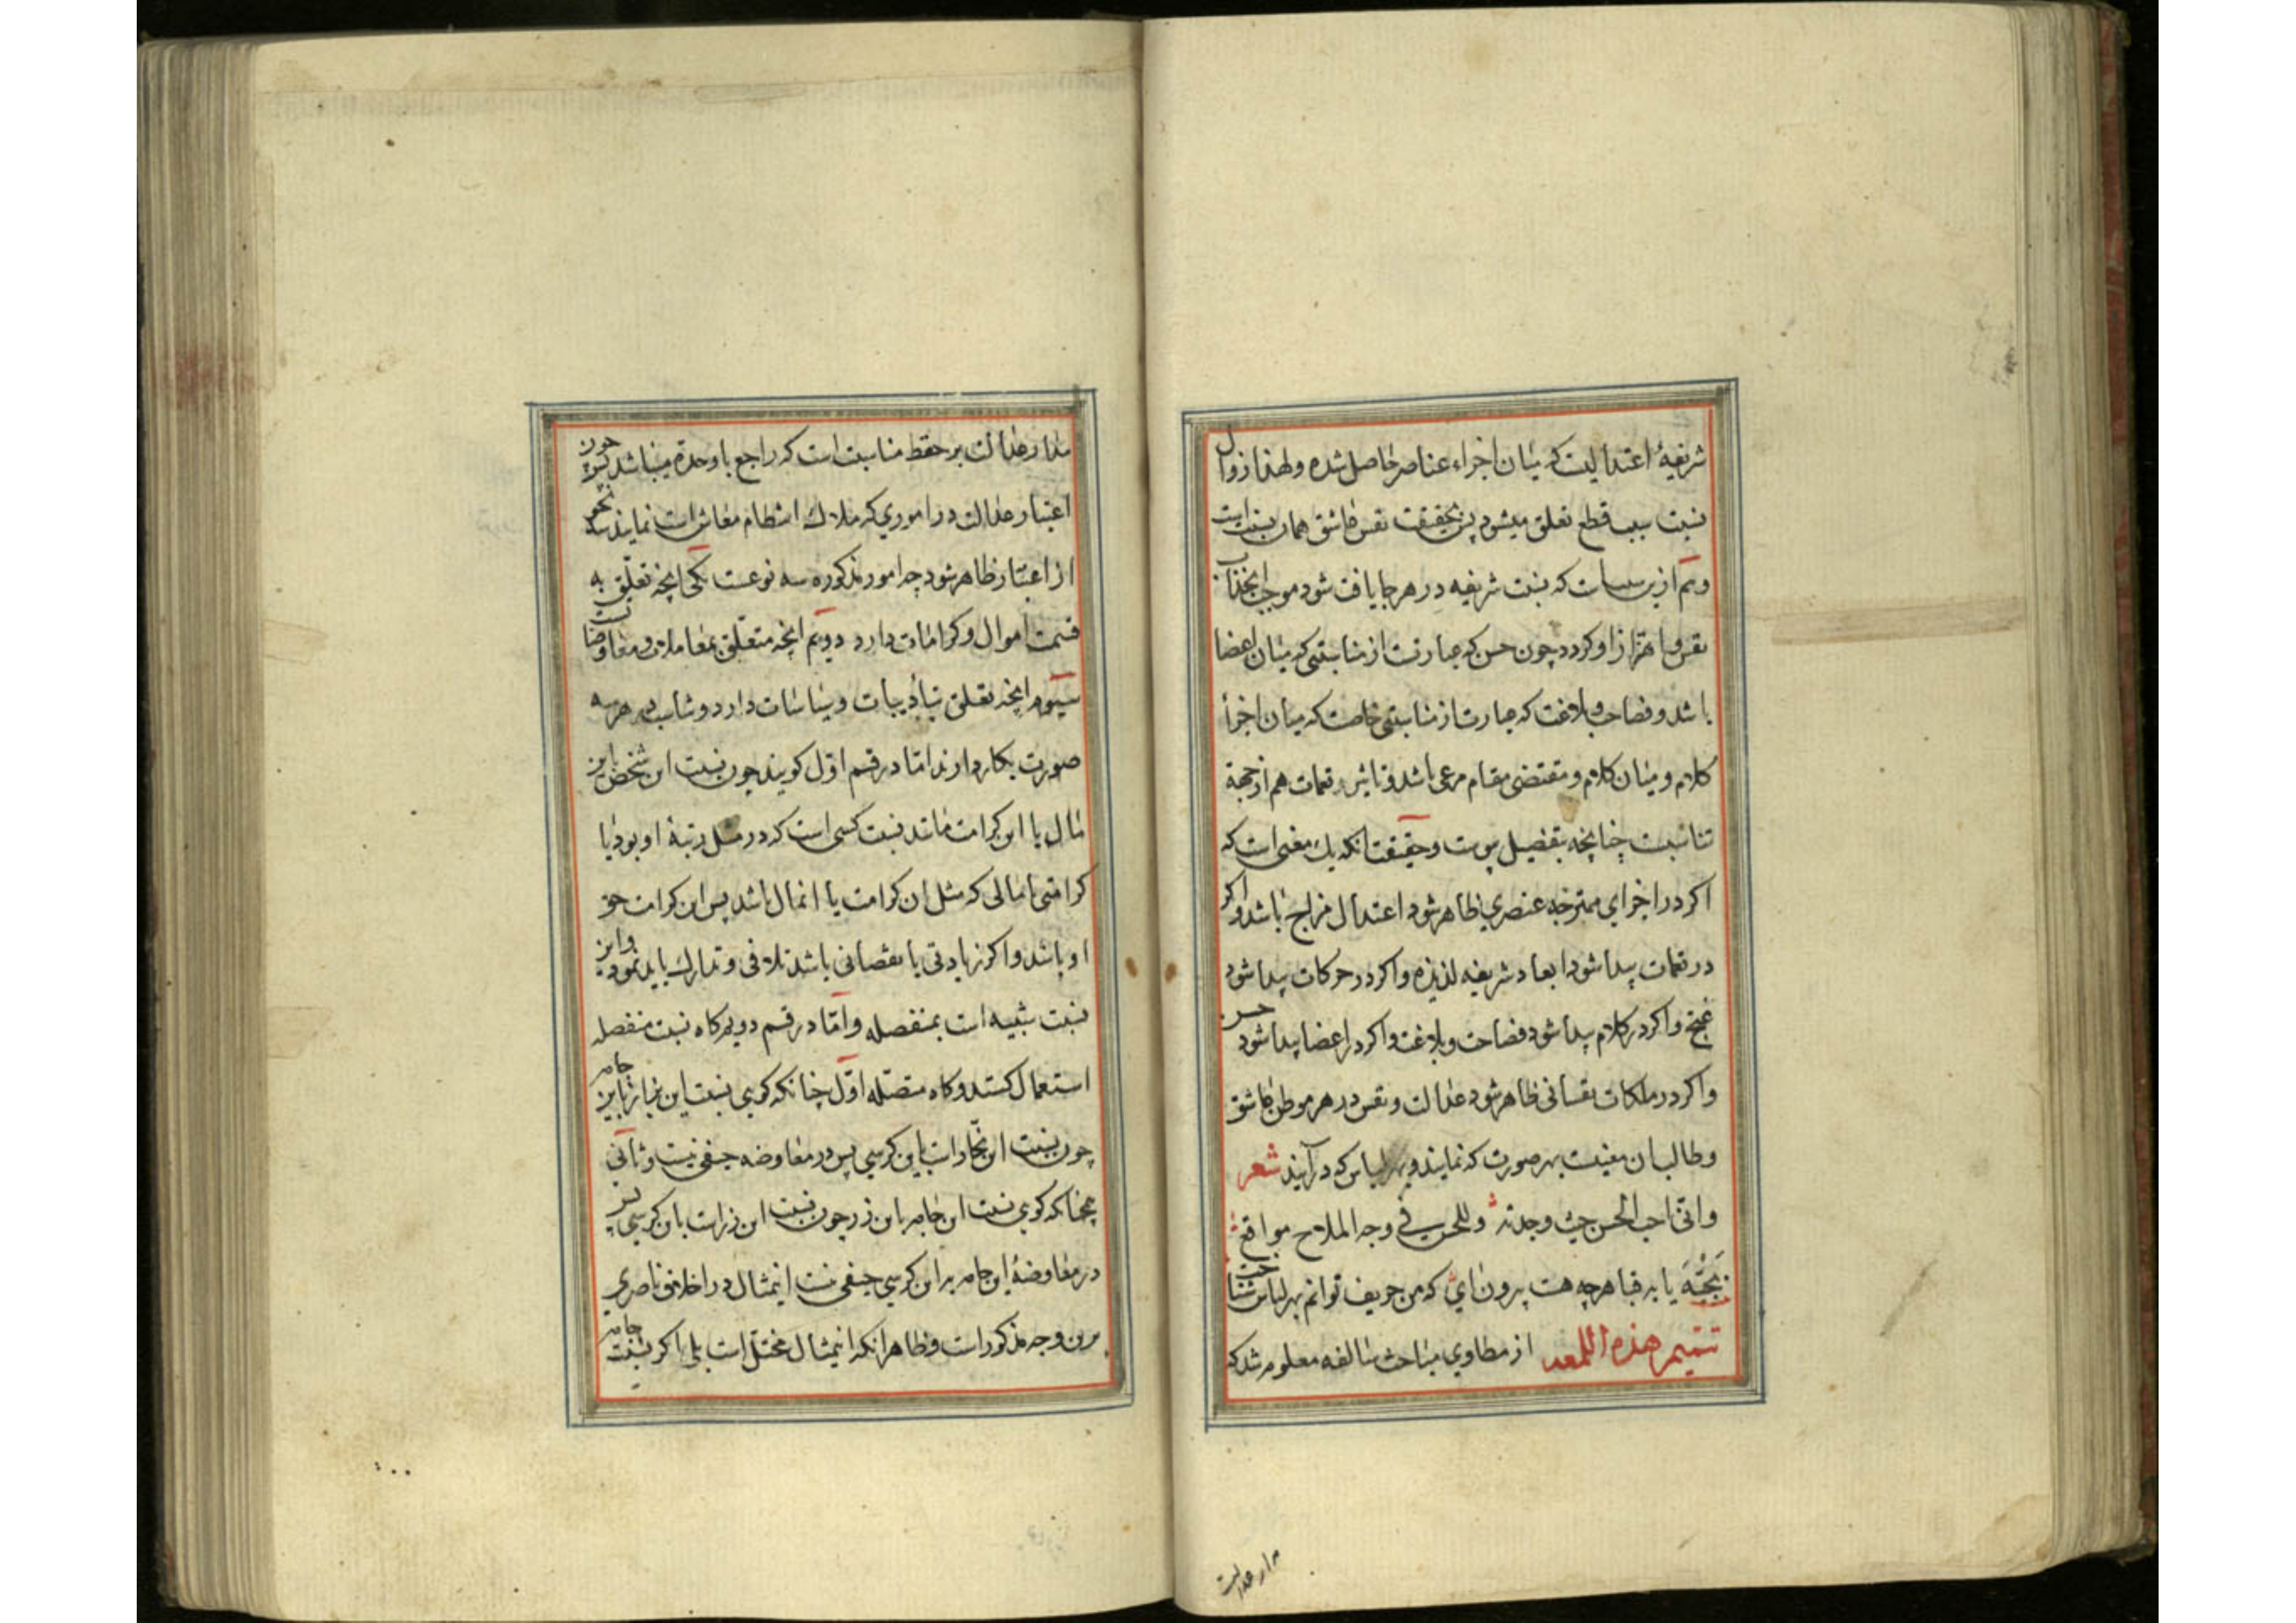 شریفهٔ اعتدالیست که میان اجزاء عناصر حاصل شده ولهذا زوال
نسبت سبب قطع تعلق میشود پس بحقیقت نفس عاشق همان نسبت است
و هم ازین سبب است که نسبت شریفه در هر جا یافت شود موجب انجذاب
نفس و اهتزاز او کردد چون حسن که عبارتست از مناسبتی که میان اعضا
باشد و فصاحت و بلاغت که عبارت از مناسبتی خاصت که میان اجزأ
کلام و میان کلام و مقتضی مقام مرعی باشد و تاثیر نغمات هم از جهة
تناسبست چنانچه بتفصیل پیوست و حقیقت آنکه یک معنی است که
اکر در اجزای ممتزجه عنصری ظاهر شود اعتدال مزاج باشد و اکر
در نغمات پیدا شود ابعاد شریفه لذیذه و اکر در حرکات پیدا شود
غنج و اکر در کلام پیدا شود فصاحت و بلاغت و اکر در اعضا پیدا شود حسن
و اکر در ملکات نفسانی ظاهر شود عدالت و نفس در هر موطن عاشق
و طالب ان معنیست بهر صورت که نماید و بهر لباس که در آیند شعر
وانی احب الحسن حیث وجدته وللحسن فی وجه الملاح مواقع
بجبّه یا به قبا هرچه هست برون ای که من جو نیف توانم بهر لباس شناخت
تتمیم هذه اللمعه از مطاوی مباحث سالفه معلوم شد که
مدار عدالت
مدار عدالت بر حفظ مناسبت است که راجع با وحدة میباشد چون
اعتبار عدالت در اموری که ملاک انتظام معاش است نمایند سه نحو
از اعتبار ظاهر شود چه امور مذکوره سه نوعست یکی انچه تعلّق به
قسمت اموال و کرامات دارد دویّم انچه متعلّق بمعاملات و معاوضات
سیّوم انچه تعلق بتأدیبات و سیاسات دارد و تناسب در هر سه
صورت بکار دارند امّا در قسم اوّل کویند چون نسبت این شخص باین
مال یا این کرامت مانند نسبت کسی است که در مثل رتبهٔ او بود با
کرامتی یا مالی که مثل ان کرامت یا انمال باشد پس این کرامت حق
او باشد و اکر زیادتی یا نقصانی باشد تلافی و تدارک باید نمود و این
نسبت شبیه است بمنفصله و امّا در قسم دویم کاه نسبت منفصله
استعمال کنند و کاه متصّله اوّل چنانکه کویی نسبت این بزاز باین جامه
چون نسبت این نجّار است باین کرسی پس در معاوضه حیفی نیست و ثانی
چنانکه کویی نسبت این جامه باین زر چون نسبت این زر است بان کرسی پس
در معاوضهٔ این جامه به این کرسی حیفی نیست اینمثال در اخلاق ناصری
برین وجه مذکور است و ظاهر انکه اینمثال مختلّ است بلی اکر نسبت جامه